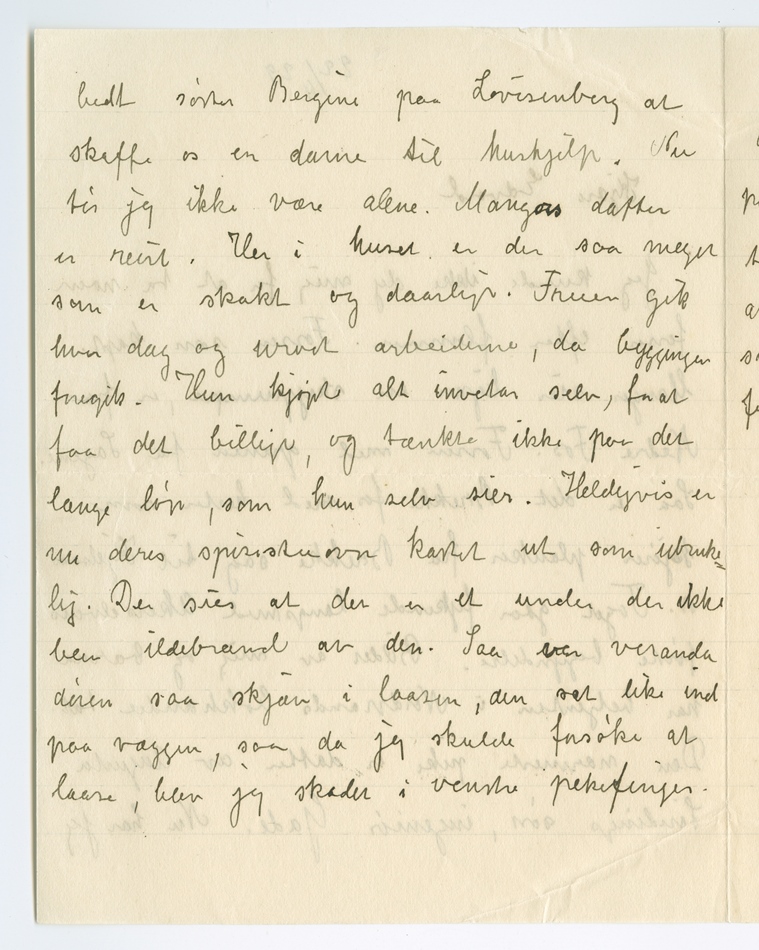 bedt søster Bergine paa Lovisenberg at
skaffe os en dame til hushjelp. Nu
tør jeg ikke være alene. Mangors datter
er reist. Her i huset er der saa meget
som er skakt og daarlig. Fruen gik
hver dag og arbeiderne, da byggingen
foregik. Hun kjøpte alt invetar selv, for at
faa det billigt, og tænkte ikke paa det
lange løp, som hun selv sier. Heldigvis er
nu deres spisestueovn kastet ut som ubruke=
lig. Der sies at det er et under der ikke
blev ildebrand av den. Saa var veranda
døren saa skjæv i laasen, den sat like ind
paa væggen, saa da jeg skulde forsøke at
laase, blev jeg skadet i venstre pekefinger.